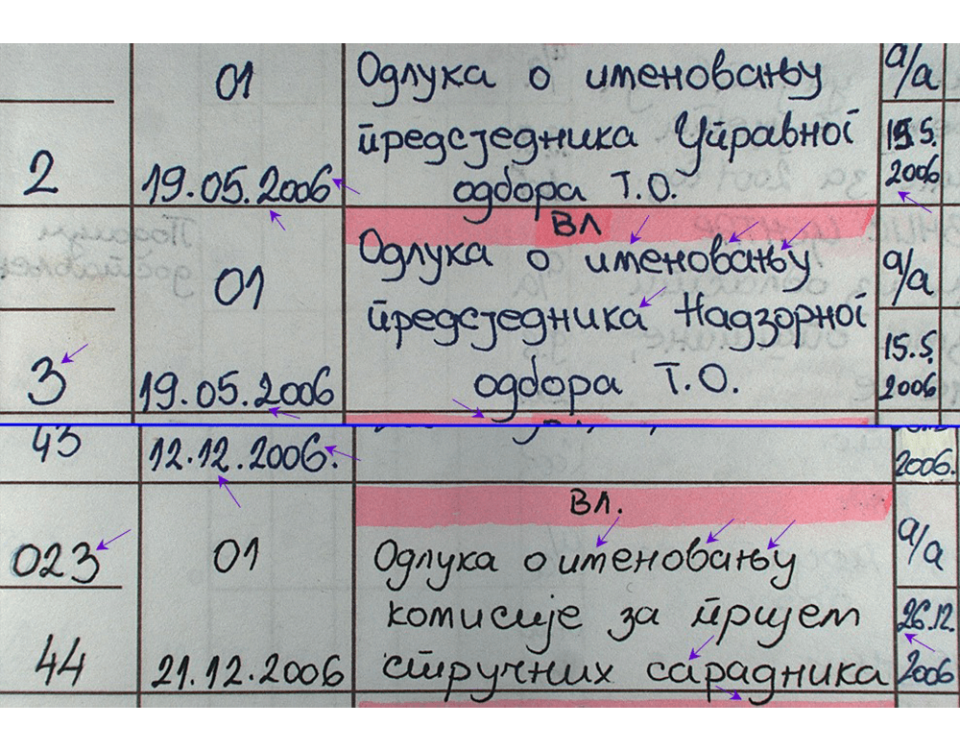 01
Одлука о именовању
а/а
предсједника Управног
15.5.
2
19.05.2006
одбора Т.О.
2006
ВЛ
Одлука о именовању
01
а/а
предсједника Надзорног
15.5.
3
19.05.2006
одбора Т.О.
2006
43
12.12.2006.
2006.
ВЛ.
023
01
Одлука о именовању
а/а
комисије за пријем
26.12.
44
21.12.2006
стручних сарадника
2006